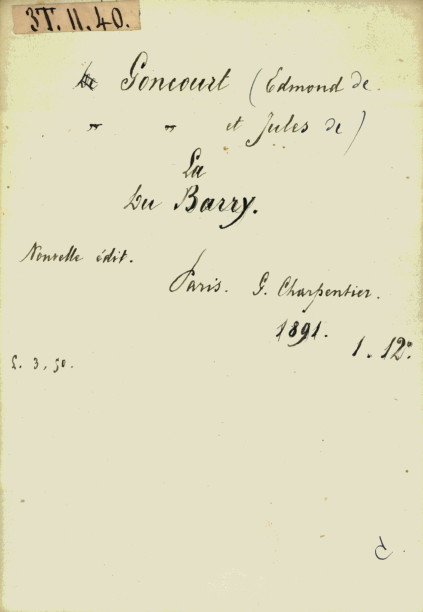 3T.II.40.
Goncourt (Edmond de
" " et Jules de)
La
Du Barry.
Nouvelle édit.
Paris. G. Charpentier.
1891.
1. 12°
L. 3, 50.
C.